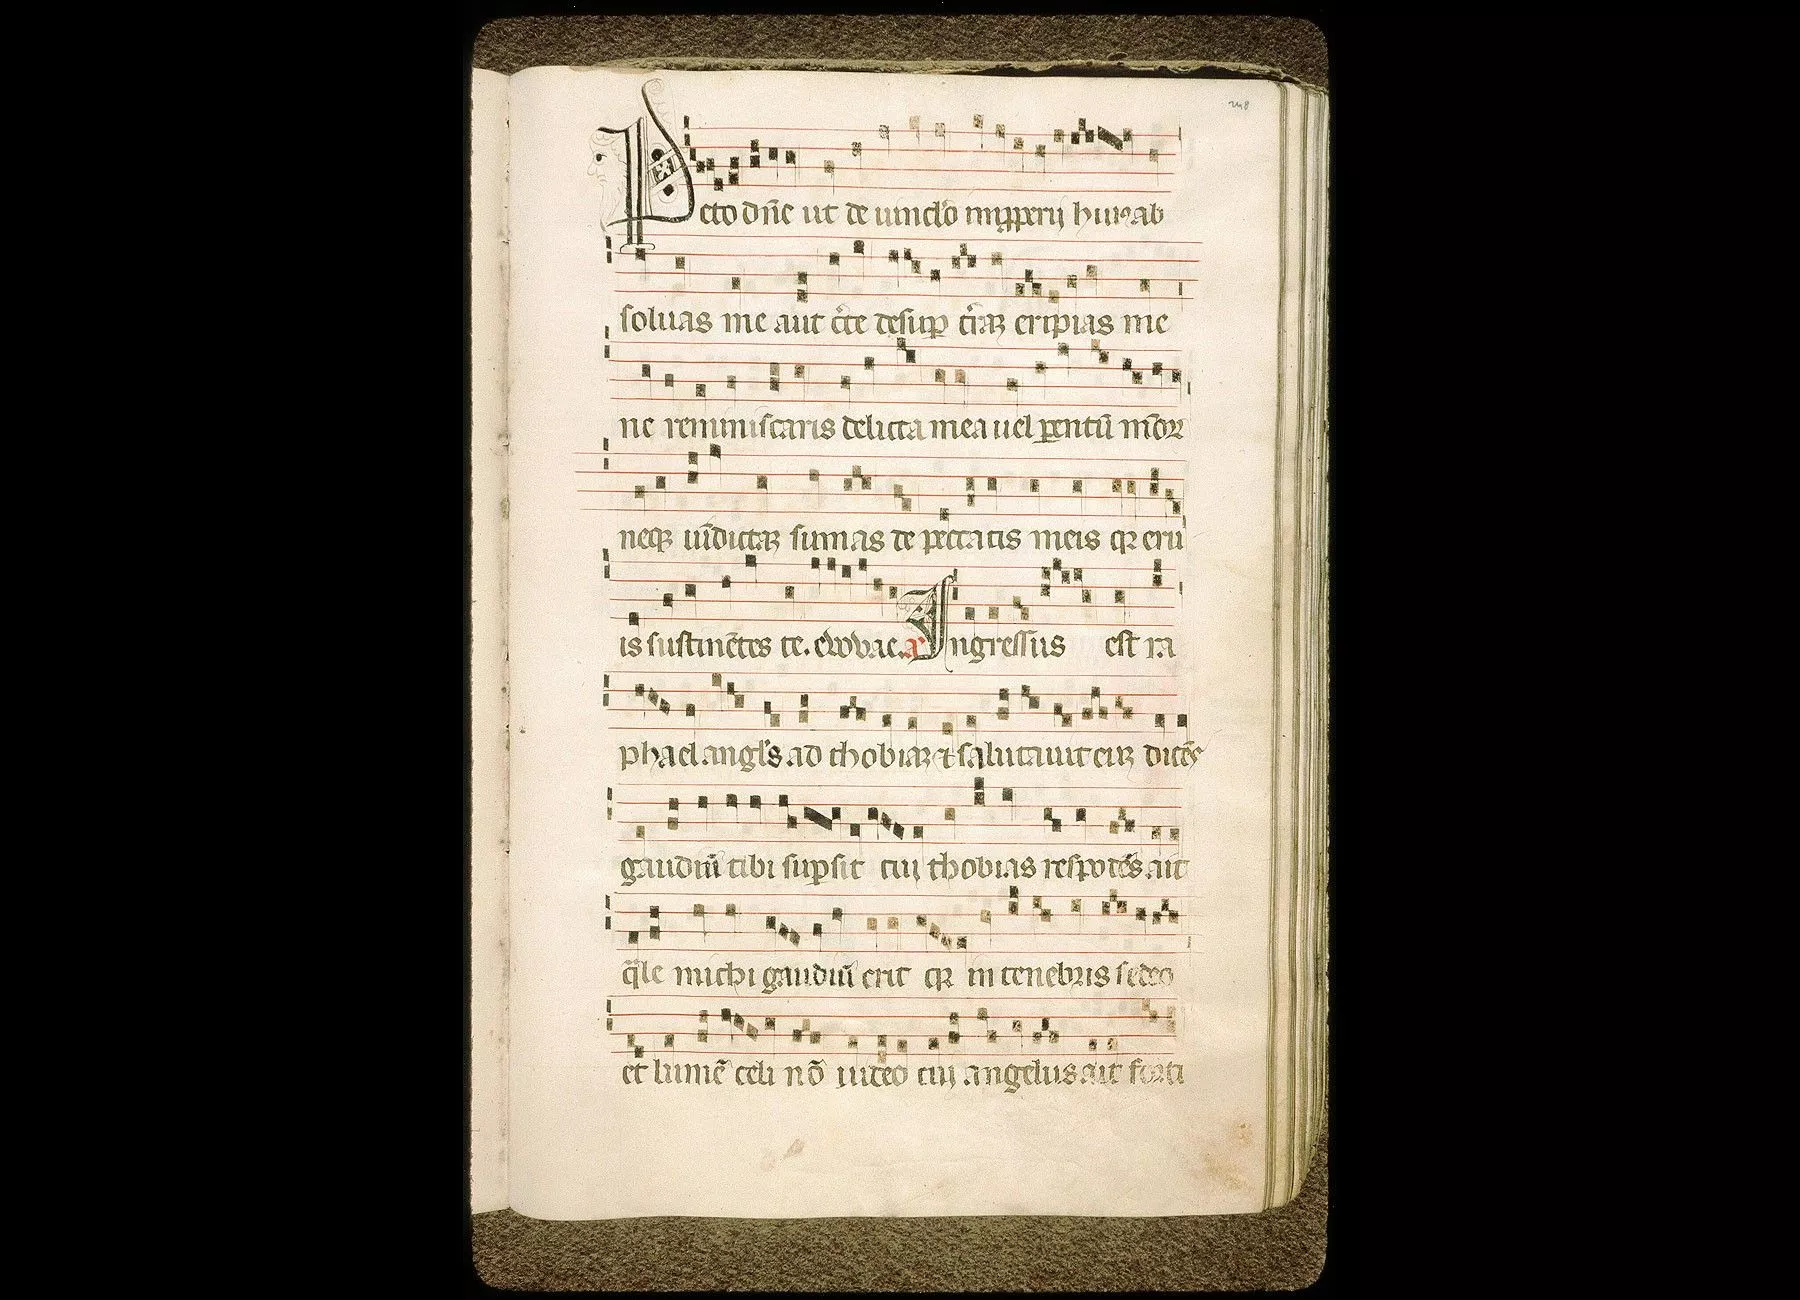 248
Peto dn̄e ut de uinclo īnp̄perij huiꝰ ab
soluas me aut c̄te desup t̄raꝝ eripias me
ne reminiscaris delicta mea uel parentū meoꝝ
neqꝫ uīdictaꝫ sumas de peccatis meis qꝛ eru
is sustinētes te. euouae. a Ingressus est ra
phael angl̄s ad thobiaꝫ ⁊ salutauit euꝫ dicēs
gaudiū tibi sup sit cui thobias respōdēs ait
q̄le michi gaudiū erit qꝛ in tenebris sedeo
et lumē celi nō uideo cui angelus ait forti